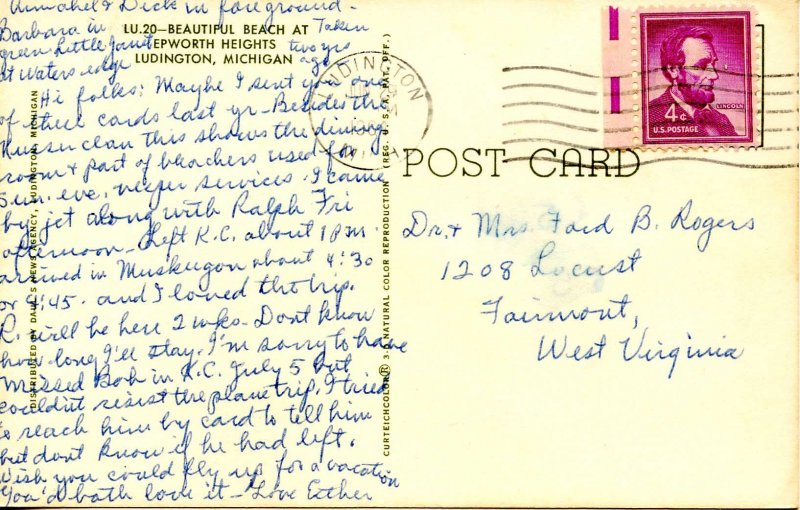 Annabel & Dick in foreground -
Barbara in
green Little Janet
at Waters edge
Taken
two yrs
ago
LU.20—BEAUTIFUL BEACH AT
EPWORTH HEIGHTS
LUDINGTON, MICHIGAN
Hi folks: Maybe I sent you one
of these cards last yr - Besides the
clan this shows the dining
room & part of bleachers used for
Sun. eve. vesper services. I came
by jet along with Ralph Fri
afternoon. Left K.C. about 1 P.M.
arrived in Muskugon about 4:30
or 4:45. and I loved the trip.
R. will be here 2 wks - Dont know
how long I'll stay. I'm sorry to have
missed Bob in K.C. July 5 but
couldn't resist the plane trip. I tried
to reach him by card to tell him
but dont know if he had left.
Wish you could fly up for a vacation
You'd both love it - Love Esther
DISTRIBUTED BY NEWS AGENCY, LUDINGTON, MICHIGAN
CURTEICHCOLOR® 3-D NATURAL COLOR REPRODUCTION (REG. U.S.A. PAT. OFF.)
LUDINGTON
4¢
LINCOLN
U.S. POSTAGE
POST CARD
Dr. & Mrs. Ford B. Rogers
1208 Locust
Fairmont,
West Virginia